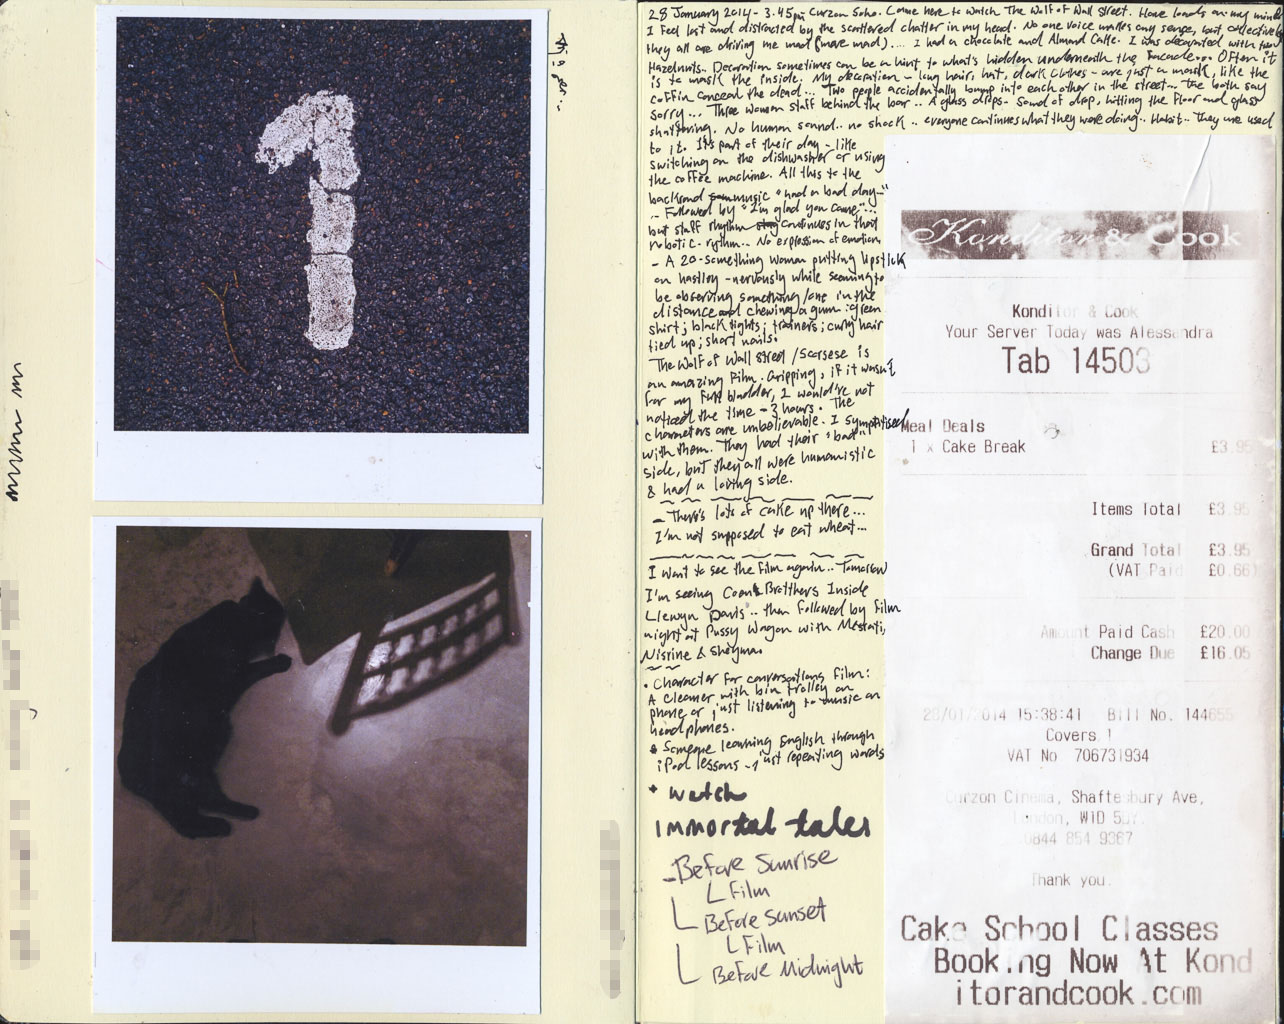 28 January 2014 - 3.45pm Curzon Soho. Came here to watch The Wolf of Wall Street. Have loads on my mind
I feel lost and distracted by the scattered chatter in my head. No one voice makes any sense, but collectively
they all are driving me mad (more mad).... I had a chocolate and Almond Cake. I was decorated with two
Hazelnuts.. Decoration sometimes can be a hint to what's hidden underneath the facade... Often it
is to mask the inside. My decoration - long hair, hat, dark clothes - are just a mask, like the
coffin conceal the dead... Two people accidentally bump into each other in the street... the both say
sorry... Three women staff behind the bar.. A glass drops - sound of drop, hitting the floor and glass
shattering. No human sound.. no shock.. everyone continues what they were doing.. Habit.. They are used
to it. It's part of their day - like
switching on the dishwasher or using
the coffee machine. All this to the
music "had a bad day"
.. Followed by "I'm glad you came"...
but staff rhythm continues in that
robotic rythm... No explosion of emotion
- A 20-something woman putting lipstick
on hastily - nervously while seeming to
be observing something/one in the
distance and chewing a gum: green
shirt; black tights; trainers; curly hair
tied up; short nails.
The Wolf of Wall Street / Scorsese is
an amazing film. Gripping, if it wasn't
for my full bladder, I would've not
noticed the time - 3 hours. The
characters are unbelievable. I
with them. They had their "bad"
side, but they all were humanistic
& had a loving side.
- There's lots of cake up there...
I'm not supposed to eat wheat...
I want to see the film again... Tomorrow
I'm seeing Inside
Llewyn Davis.. then followed by film
night at Pussy Wagon with
Nisrine &
• Character for conversations film:
A cleaner with bin trolley on
phone or just listening to music on
headphones.
• Someone learning English through
iPod lessons - just repeating words
+ watch
immortal tales
- Before Sunrise
Film
Before Sunset
Film
Before Midnight
Konditor & Cook
Konditor & Cook
Your Server Today was Alessandra
Tab 14503
Meal Deals
1 x Cake Break £3.95
Items Total £3.95
Grand Total £3.95
(VAT Paid £0.66)
Amount Paid Cash £20.00
Change Due £16.05
28/01/2014 15:38:41 Bill No. 144655
Covers 1
VAT No 706731934
Curzon Cinema, Shaftesbury Ave,
London, W1D
0844 854 9367
Thank you.
Cake School Classes
Booking Now At Kond
itorandcook.com
1